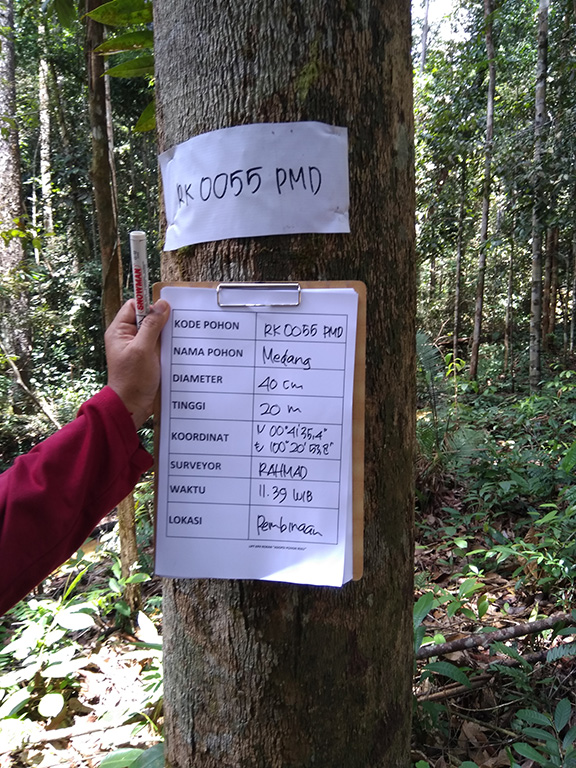 RK 0055 PMD
SNOWMAN
KODE POHON RK 0055 PMD
NAMA POHON Medang
DIAMETER 40 cm
TINGGI 20 m
KOORDINAT U 00°41'35,4"
E 100°20'53,8"
SURVEYOR RAHMAD
WAKTU 11.39 WIB
LOKASI Pembinaan